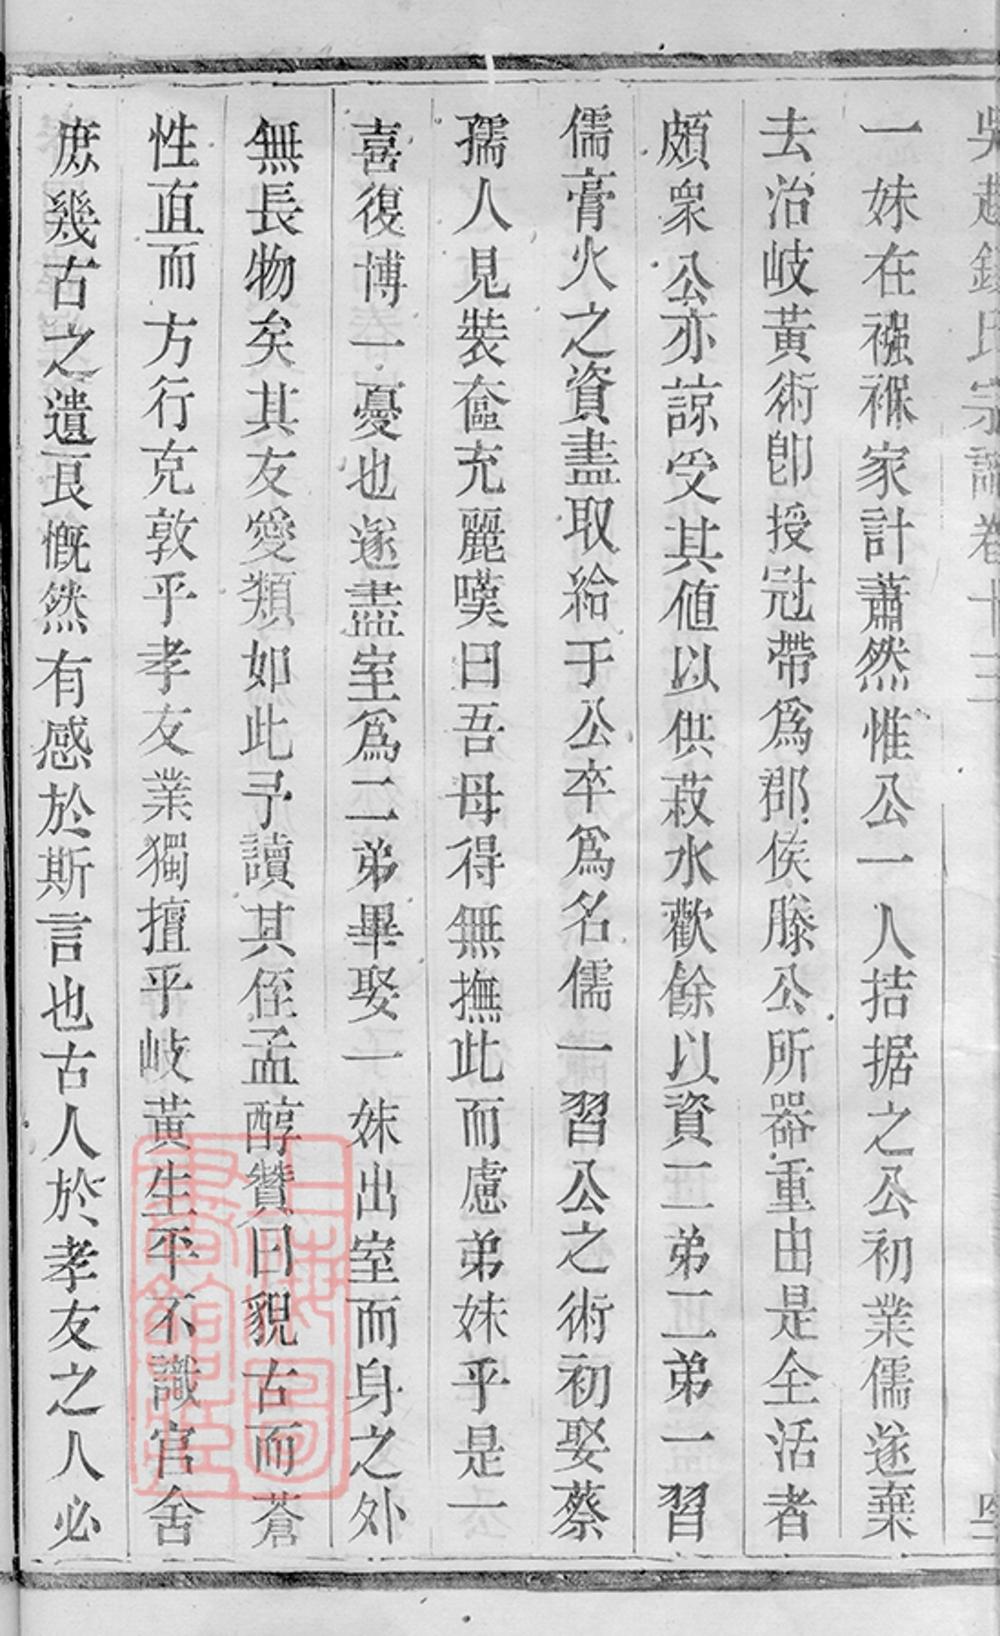 吳趙錢氏宗譜卷十三
一妹在襁褓家計蕭然惟公一人拮据之公初業儒遂棄
去治岐黃術卽授冠帶爲郡侯滕公所器重由是全活者
頗衆公亦諒受其値以供菽水歡餘以資二弟二弟一習
儒膏火之資盡取給于公卒爲名儒一習公之術初娶蔡
孺人見裝奩充麗嘆曰吾母得無撫此而慮弟妹乎是一
喜復博一憂也遂盡室爲二弟畢娶一妹出室而身之外
無長物矣其友愛類如此予讀其侄孟醇贊曰貌古而蒼
性直而方行克敦乎孝友業獨擅乎岐黃生平不識官舍
庶幾古之遺民慨然有感於斯言也古人於孝友之人必
上海圖書館藏